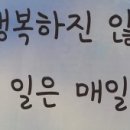 행복하진 않
일은 매일